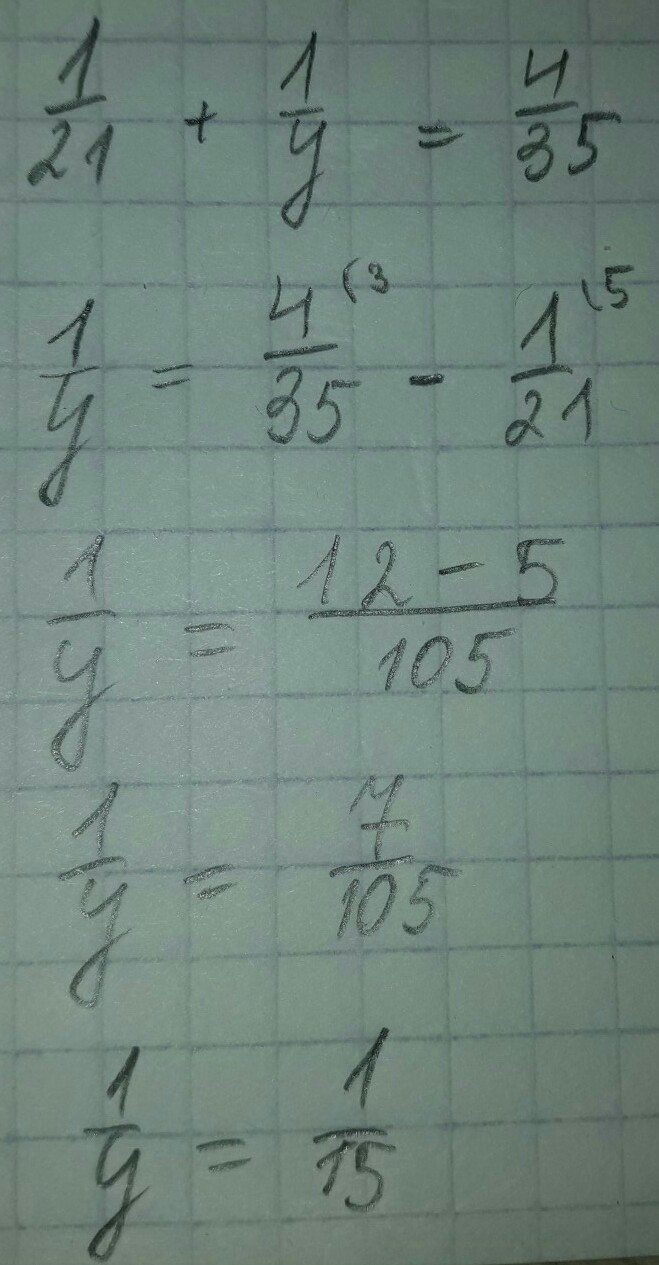 1/21 + 1/y = 4/35
1/y = 4/35 (3 - 1/21 (5
1/y = 12 - 5/105
1/y = 7/105
1/y = 1/15